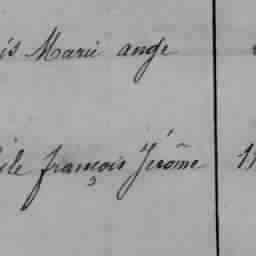 Marie ange
françois Jérôme